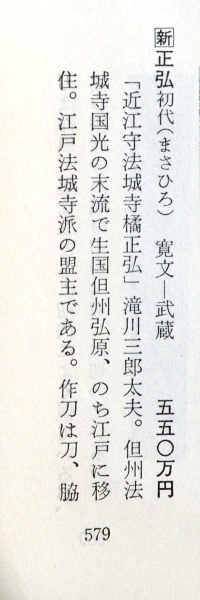 新 正弘初代(まさひろ) 寛文―武蔵 五五〇万円
「近江守法城寺橘正弘」滝川三郎太夫。但州法
城寺国光の末流で生国但州弘原、のち江戸に移
住。江戸法城寺派の盟主である。作刀は刀、脇
579